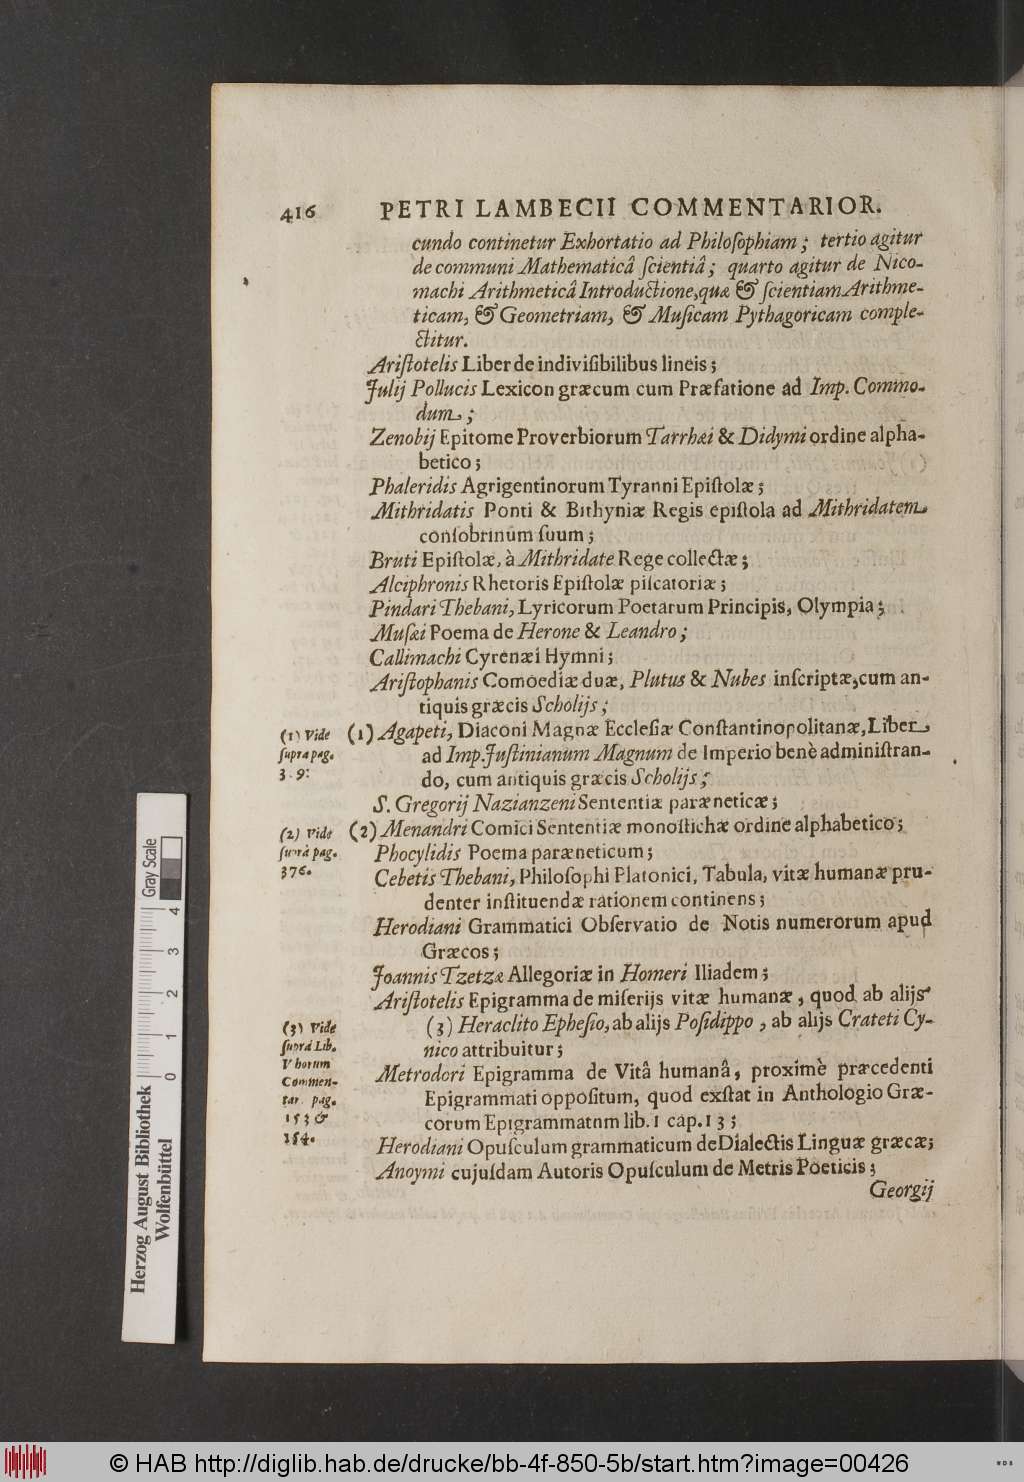 416 PETRI LAMBECII COMMENTARIOR.
cundo continetur Exhortatio ad Philoſophiam; tertio agitur
de communi Mathematicâ ſcientiâ; quarto agitur de Nico-
machi Arithmeticâ Introductione, quæ & ſcientiam Arithme-
ticam, & Geometriam, & Muſicam Pythagoricam comple-
ctitur.
Ariſtotelis Liber de indiviſibilibus lineis;
Julij Pollucis Lexicon græcum cum Præfatione ad Imp. Commo-
dum;
Zenobij Epitome Proverbiorum Tarrhæi & Didymi ordine alpha-
betico;
Phaleridis Agrigentinorum Tyranni Epiſtolæ;
Mithridatis Ponti & Bithyniæ Regis epiſtola ad Mithridatem
conſobrinum ſuum;
Bruti Epiſtolæ, à Mithridate Rege collectæ;
Alciphronis Rhetoris Epiſtolæ piſcatoriæ;
Pindari Thebani, Lyricorum Poetarum Principis, Olympia;
Muſæi Poema de Herone & Leandro;
Callimachi Cyrenæi Hymni;
Ariſtophanis Comoediæ duæ, Plutus & Nubes inſcriptæ, cum an-
tiquis græcis Scholijs;
(1) Agapeti, Diaconi Magnæ Eccleſiæ Conſtantinopolitanæ, Liber
ad Imp. Juſtinianum Magnum de Imperio benè adminiſtran-
do, cum antiquis græcis Scholijs;
(1) Vide
ſupra pag.
3 9:
S. Gregorij Nazianzeni Sententiæ paræneticæ;
(2) Menandri Comici Sententiæ monoſtichæ ordine alphabetico;
(2) Vide
ſuprà pag.
376.
Phocylidis Poema paræneticum;
Cebetis Thebani, Philoſophi Platonici, Tabula, vitæ humanæ pru-
denter inſtituendæ rationem continens;
Herodiani Grammatici Obſervatio de Notis numerorum apud
Græcos;
Joannis Tzetzæ Allegoriæ in Homeri Iliadem;
Ariſtotelis Epigramma de miſerijs vitæ humanæ, quod ab alijs
(3) Heraclito Epheſio, ab alijs Poſidippo, ab alijs Crateti Cy-
nico attribuitur;
(3) Vide
ſuprà Lib.
V horum
Commen-
tar. pag.
153 &
154.
Metrodori Epigramma de Vitâ humanâ, proximè præcedenti
Epigrammati oppoſitum, quod exſtat in Anthologio Græ-
corum Epigrammatum lib. 1 cap. 13;
Herodiani Opuſculum grammaticum de Dialectis Linguæ græcæ;
Anoymi cujuſdam Autoris Opuſculum de Metris Poeticis;
Georgij
Herzog August Bibliothek
Wolfenbüttel
0 1 2 3 4
Gray Scale
© HAB http://diglib.hab.de/drucke/bb-4f-850-5b/start.htm?image=00426